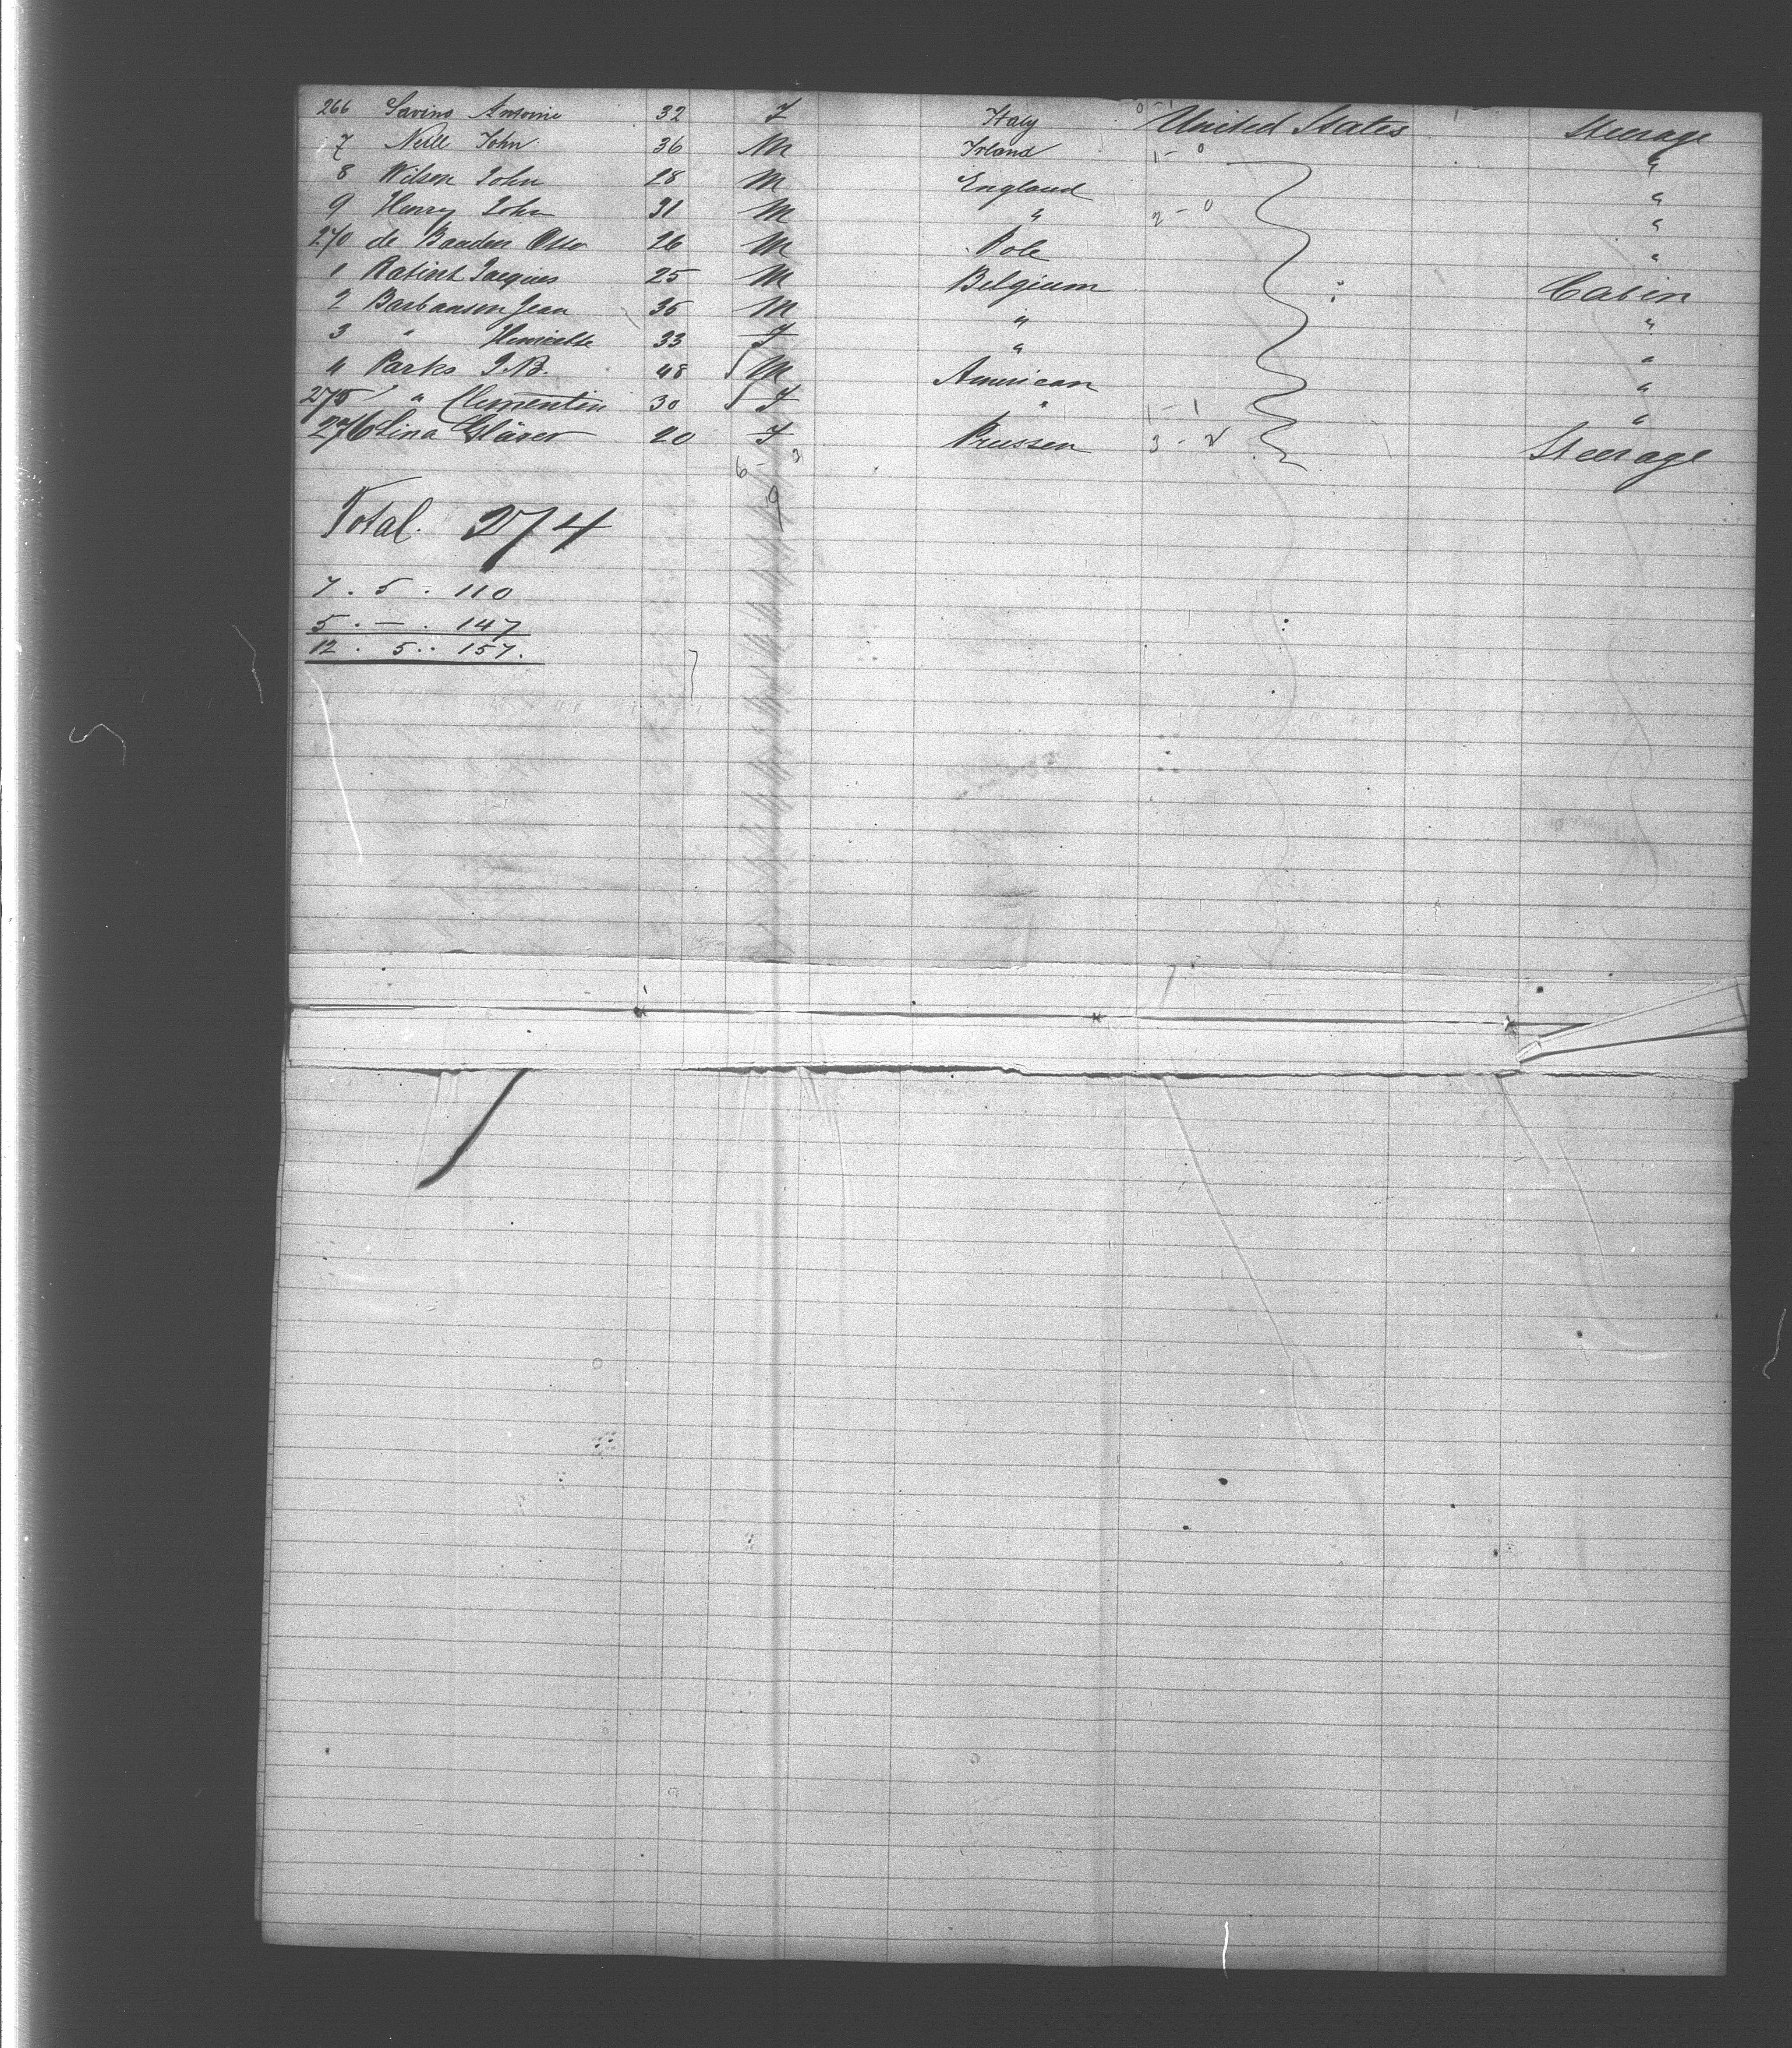 266 Savino Antonie 32 F Italy 0-1 United States Steerage
7 Neill John 36 M Irland 1-0 "
8 Wilson John 28 M England "
9 Henry John 31 M " 2-0 "
270 de Baaden Otto 26 M Pole "
1 Jacques 25 M Belgium Cabin
2 Barbanson Jean 36 M " "
3 " Henriette 33 F " "
4 Parks J.B. 48 M American "
275 " Clementin 30 F " 1-1 "
276 Lina Gläser 20 F Preussen 3-2 Steerage
6-3
9
Total. 274
7. 5. 110
5. —. 147
12. 5.. 157.